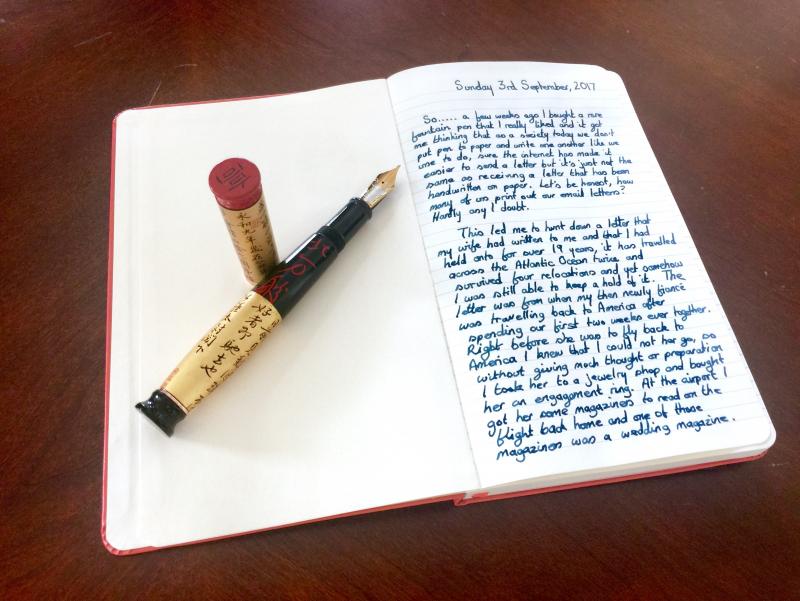 Sunday 3rd September, 2017
So..... a few weeks ago I bought a rare
fountain pen that I really liked and it got
me thinking that as a society today we don't
put pen to paper and write one another like we
use to do, sure the internet has made it
easier to send a letter but it's just not the
same as receiving a letter that has been
handwritten on paper. Let's be honest, how
many of us print out our email letters?
Hardly any I doubt.
This led me to hunt down a letter that
my wife had written to me and that I had
held onto for over 19 years, it has travelled
across the Atlantic Ocean twice and
survived four relocations and yet somehow
I was still able to keep a hold of it. The
letter was from when my then newly fiancé
was travelling back to America after
spending our first two weeks ever together.
Right before she was to fly back to
America I knew that I could not her go, so
without giving much thought or preparation
I took her to a jewelry shop and bought
her an engagement ring. At the airport I
got her some magazines to read on the
flight back home and one of those
magazines was a wedding magazine.
永和九年歲在
好者即馳去也